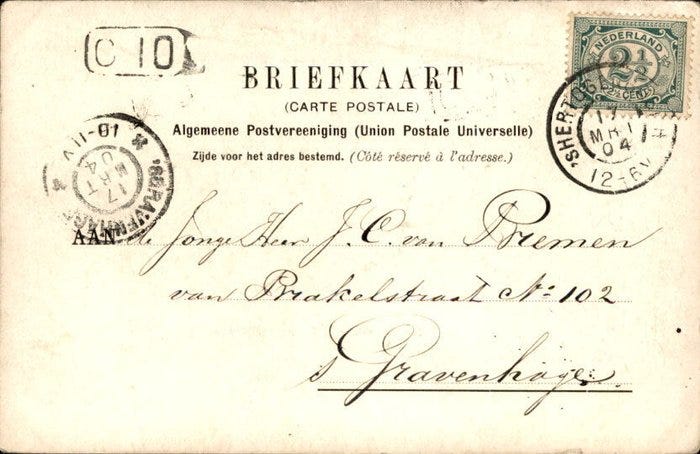 C 10
NEDERLAND
2½
CENT
BRIEFKAART
(CARTE POSTALE)
Algemeene Postvereeniging (Union Postale Universelle)
Zijde voor het adres bestemd. (Côté réservé à l'adresse.)
'SHERTOG
17
MRT
04
12-6V
'SGRAVENHAGE
10-11V
17
MRT
04
AAN de Jonge Heer J. C. van Bremen
van Brakelstraat No 102
s Gravenhage.